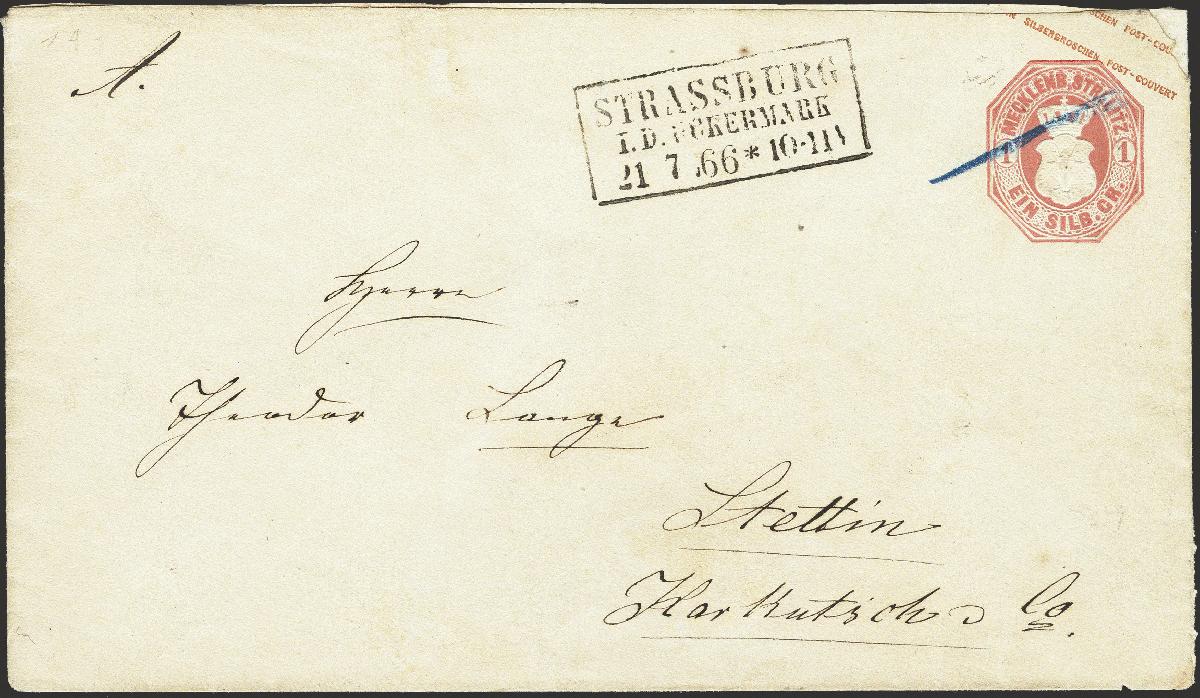 A.
SCHEN POST-COU
SILBERGROSCHEN POST-COUVERT
STRASSBURG
I.D. UCKERMARK
21 7 66 * 10-11 V
MECKLENB. STRELITZ
1 1
EIN SILB. GR.
Herrn
Theodor Lange
Stettin
Karkutsch & Co.